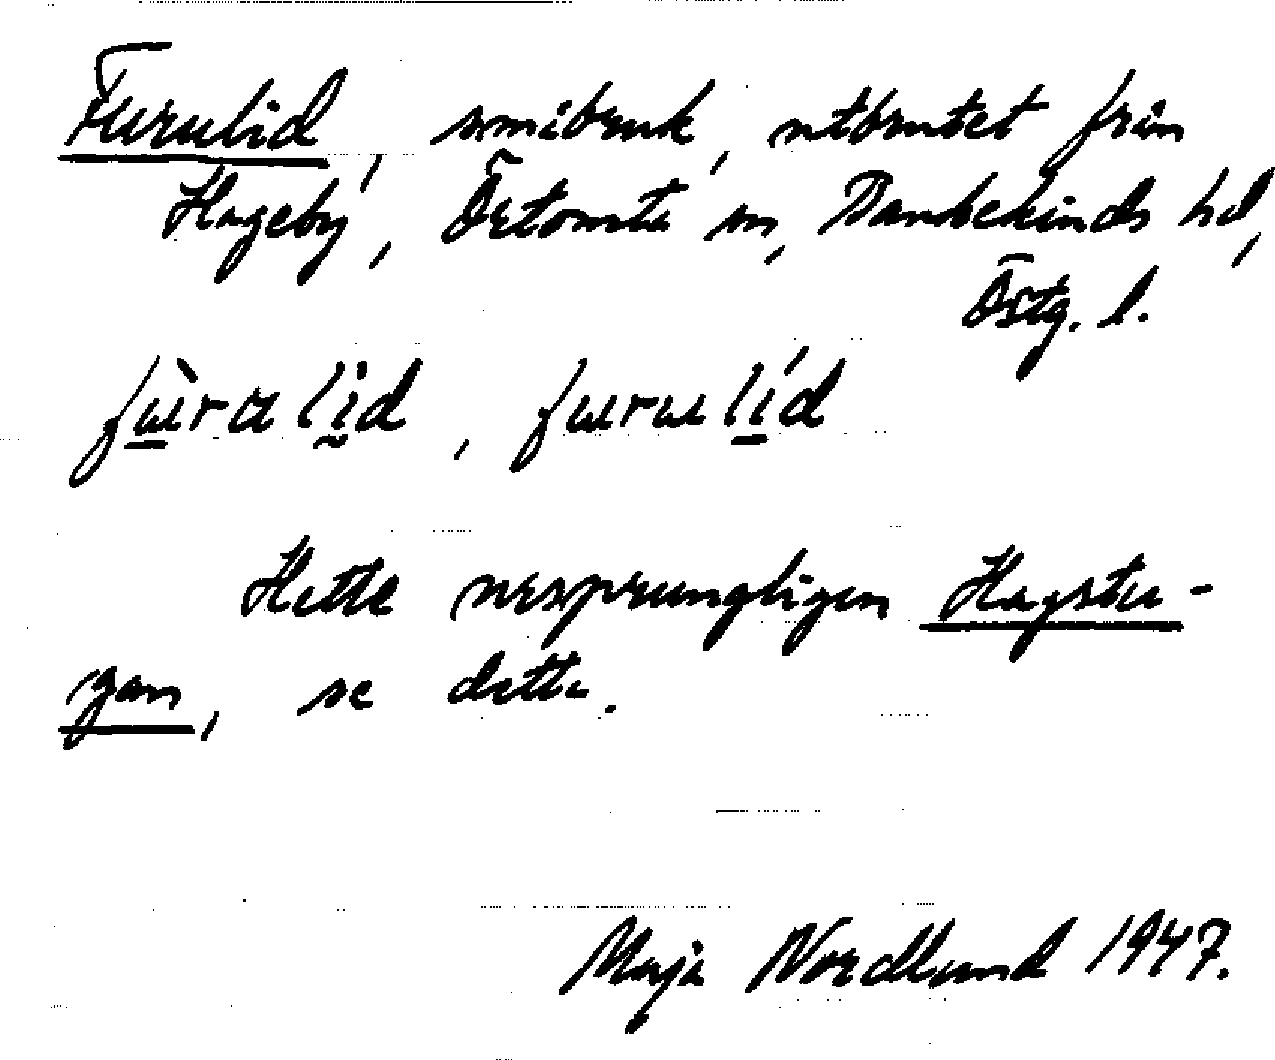 Furulid, småbruk, utbrutet från
Hageby, Östomta sn, Bankekinds hd,
Östg. l.
fùralid, furulíd
Hette ursprungligen Hagstu-
gan, se detta.
Maja Nordlund 1947.